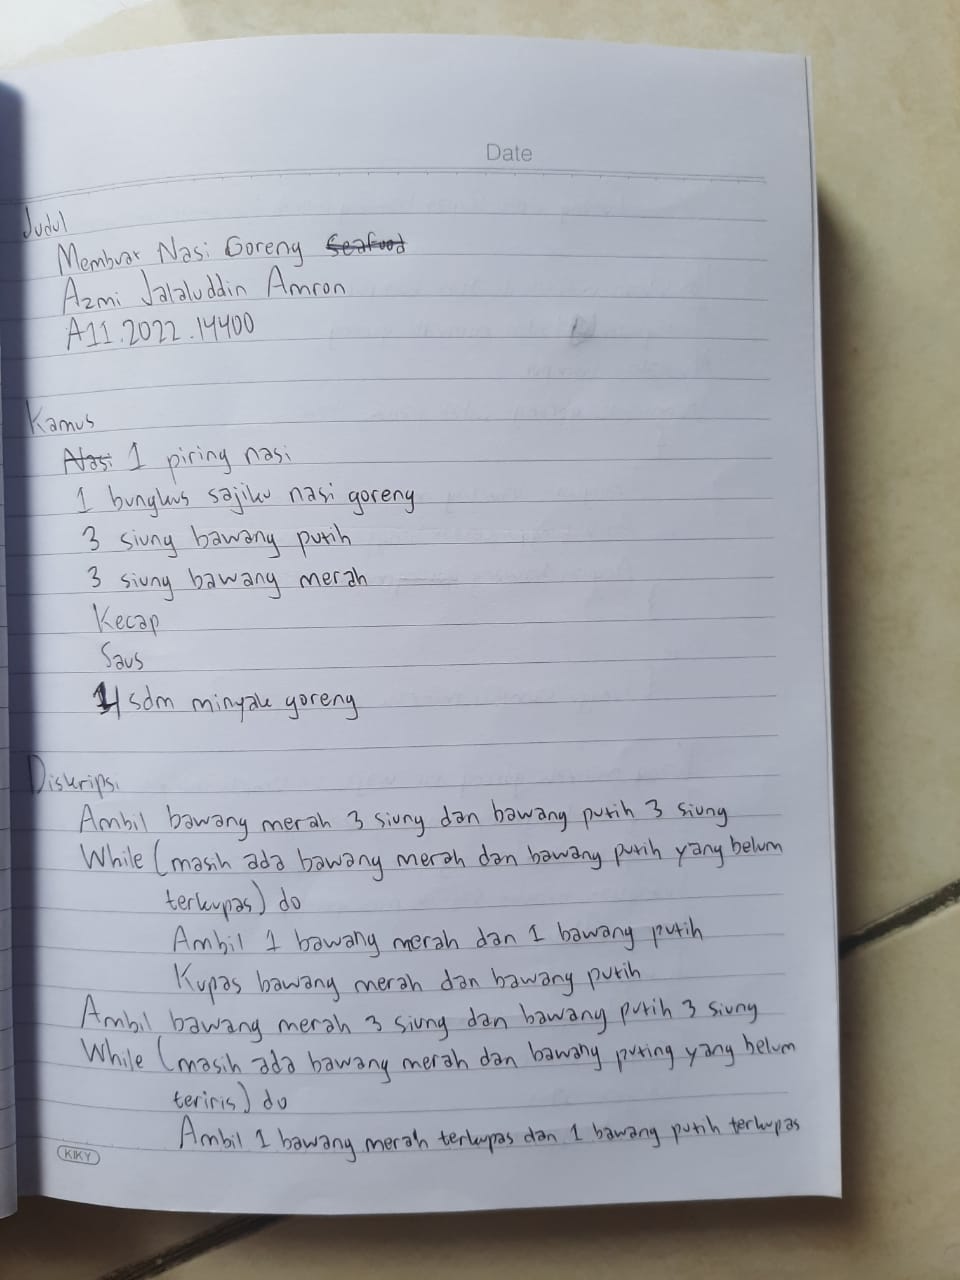 Date
Judul
Membuat Nasi Goreng Seafood
Azmi Jalaluddin Amron
A11.2022.14400
Kamus
Nasi 1 piring nasi
1 bungkus sajiku nasi goreng
3 siung bawang putih
3 siung bawang merah
Kecap
Saus
4 sdm minyak goreng
Diskripsi
Ambil bawang merah 3 siung dan bawang putih 3 siung
While (masih ada bawang merah dan bawang putih yang belum
terkupas) do
Ambil 1 bawang merah dan 1 bawang putih
Kupas bawang merah dan bawang putih
Ambil bawang merah 3 siung dan bawang putih 3 siung
While (masih ada bawang merah dan bawang puting yang belum
teriris) do
Ambil 1 bawang merah terkupas dan 1 bawang putih terkupas
KIKY